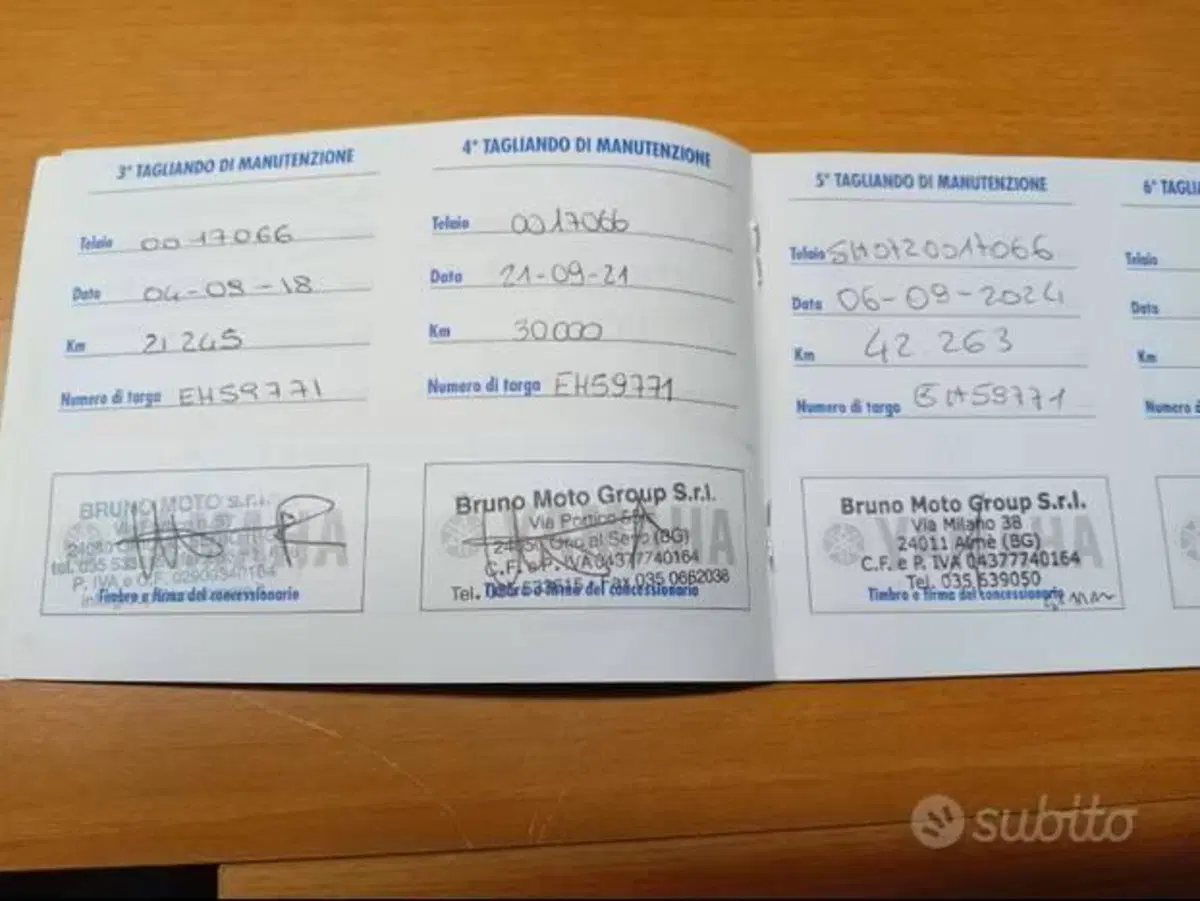 3° TAGLIANDO DI MANUTENZIONE
Telaio 0017066
Data 04-09-18
Km 21 245
Numero di targa EH59771
BRUNO MOTO s.r.l.
YAMAHA
P. IVA e C.F.
Timbro e firma del concessionario
4° TAGLIANDO DI MANUTENZIONE
Telaio 0017066
Data 21-09-21
Km 30000
Numero di targa EH59771
Bruno Moto Group S.r.l.
Via
(BG)
YAMAHA
C.F. e P. IVA 04377740164
Tel. Fax 035 0662036
Timbro e firma del concessionario
5° TAGLIANDO DI MANUTENZIONE
Telaio SH0720017066
Data 06-09-2024
Km 42 263
Numero di targa EH59771
Bruno Moto Group S.r.l.
Via Milano 38
24011 Almè (BG)
YAMAHA
C.F. e P. IVA 04377740164
Tel. 035 639050
Timbro e firma del concessionario
6° TAGLI
Telaio
Data
Km
Numero d
subito